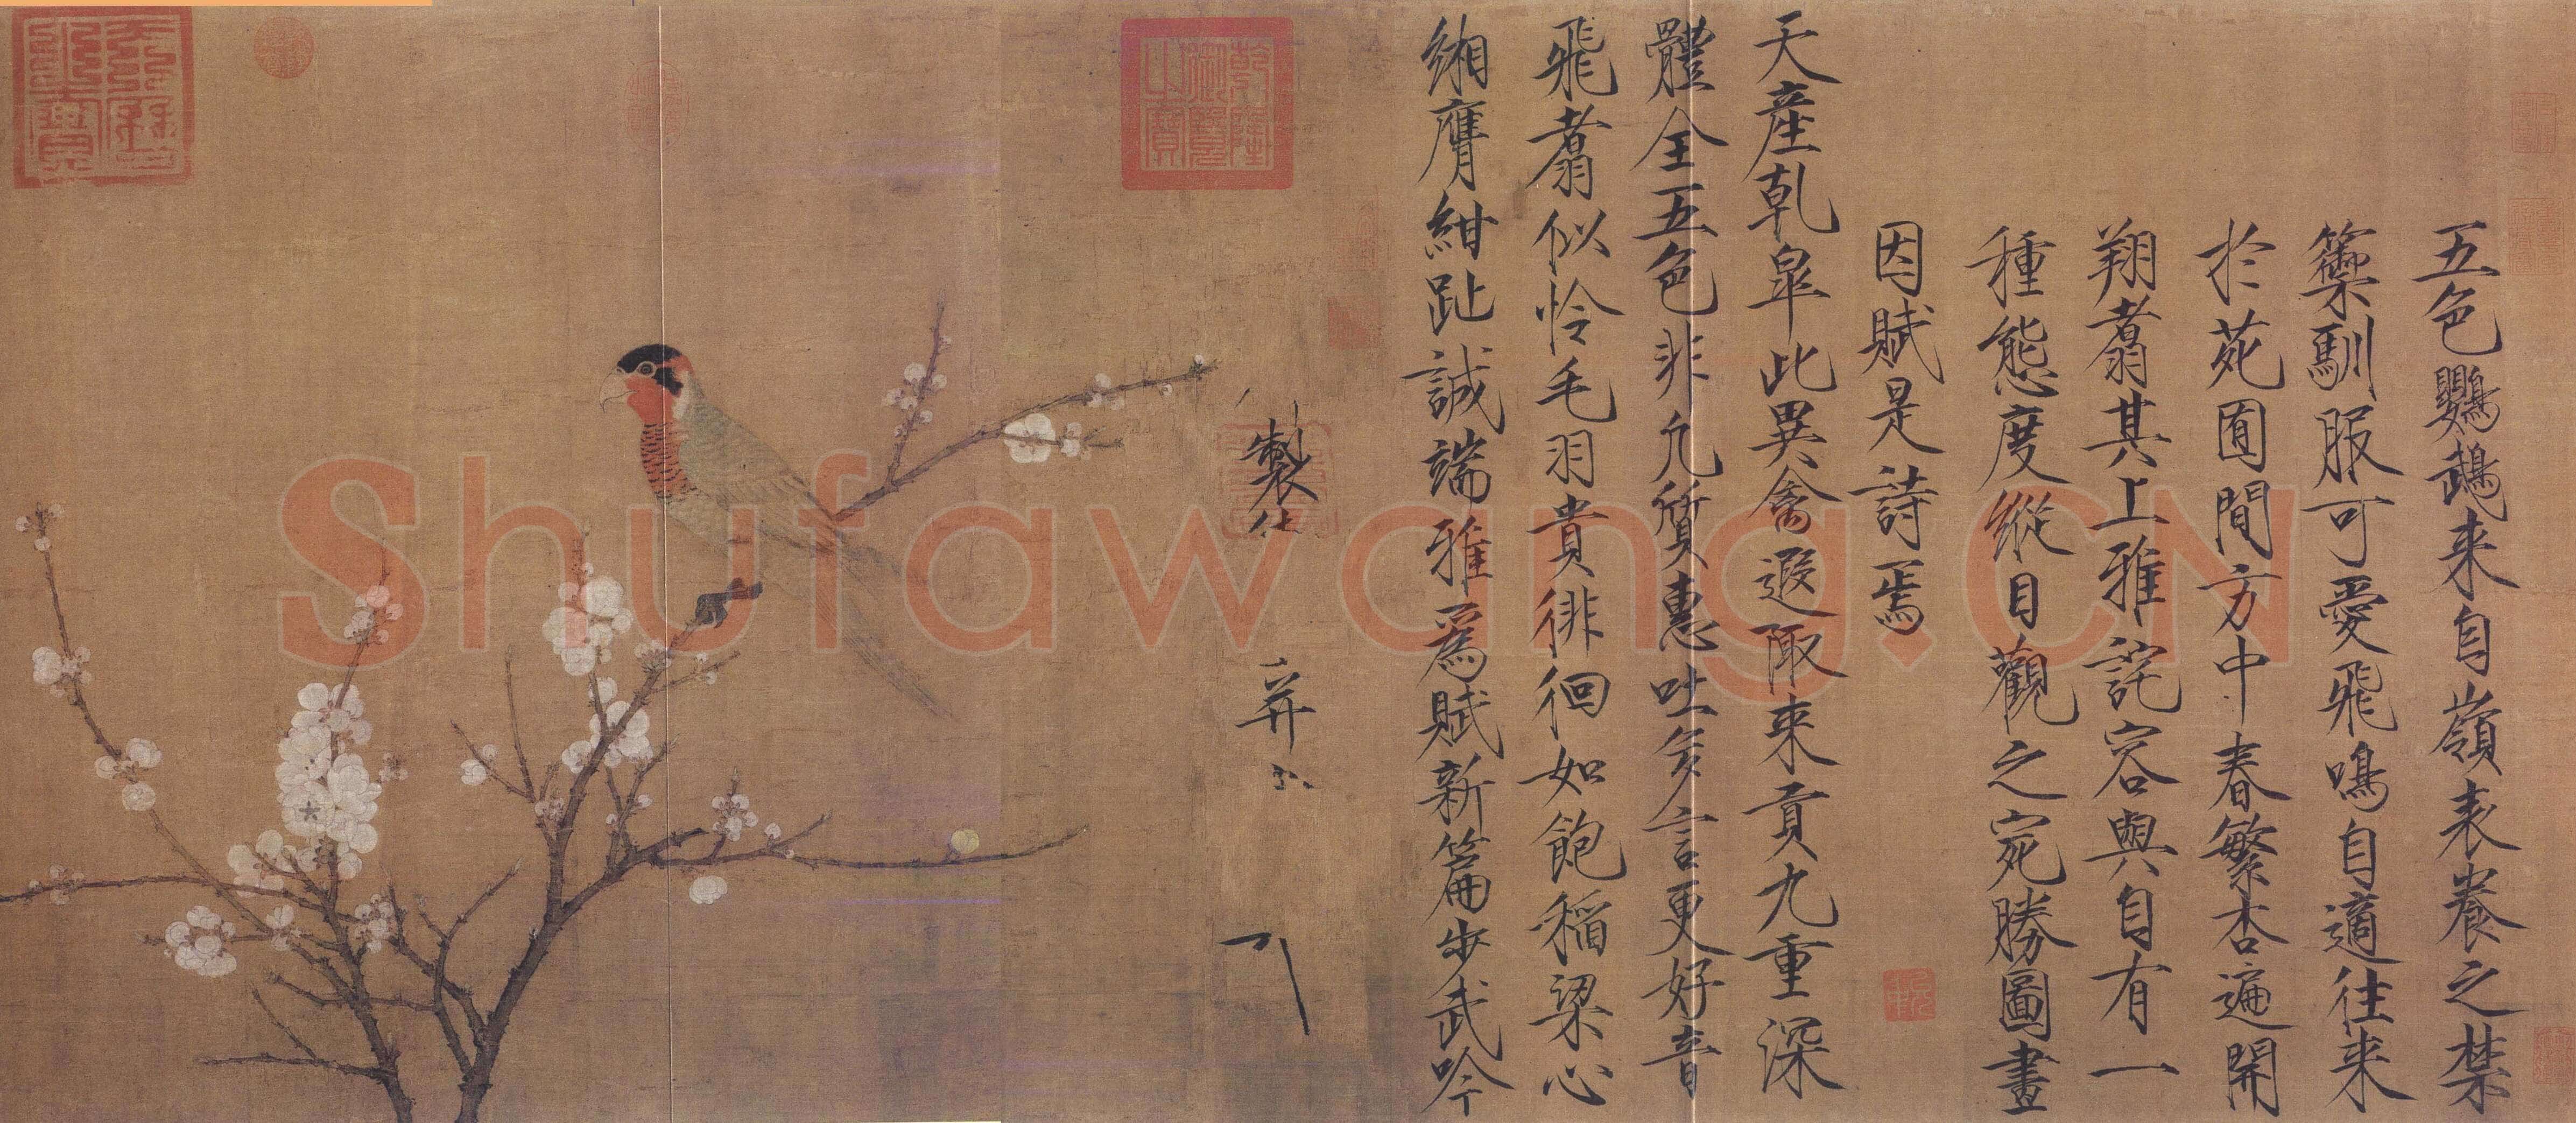 五色鸚鵡来自嶺表養之禁
籞馴服可愛飛鳴自適往来
於苑囿間方中春繁杏遍開
翔翥其上雅詫容與自有一
種態度縱目觀之宛勝圖畫
因賦是詩焉
天産乾皐此異禽遐陬来貢九重深
體全五色非凡質惠吐多言更好音
飛翥似怜毛羽貴徘徊如飽稲粱心
緗膺紺趾誠端雅爲賦新篇步武吟
製
并
乾隆御覽之寶
Shufawang.CN